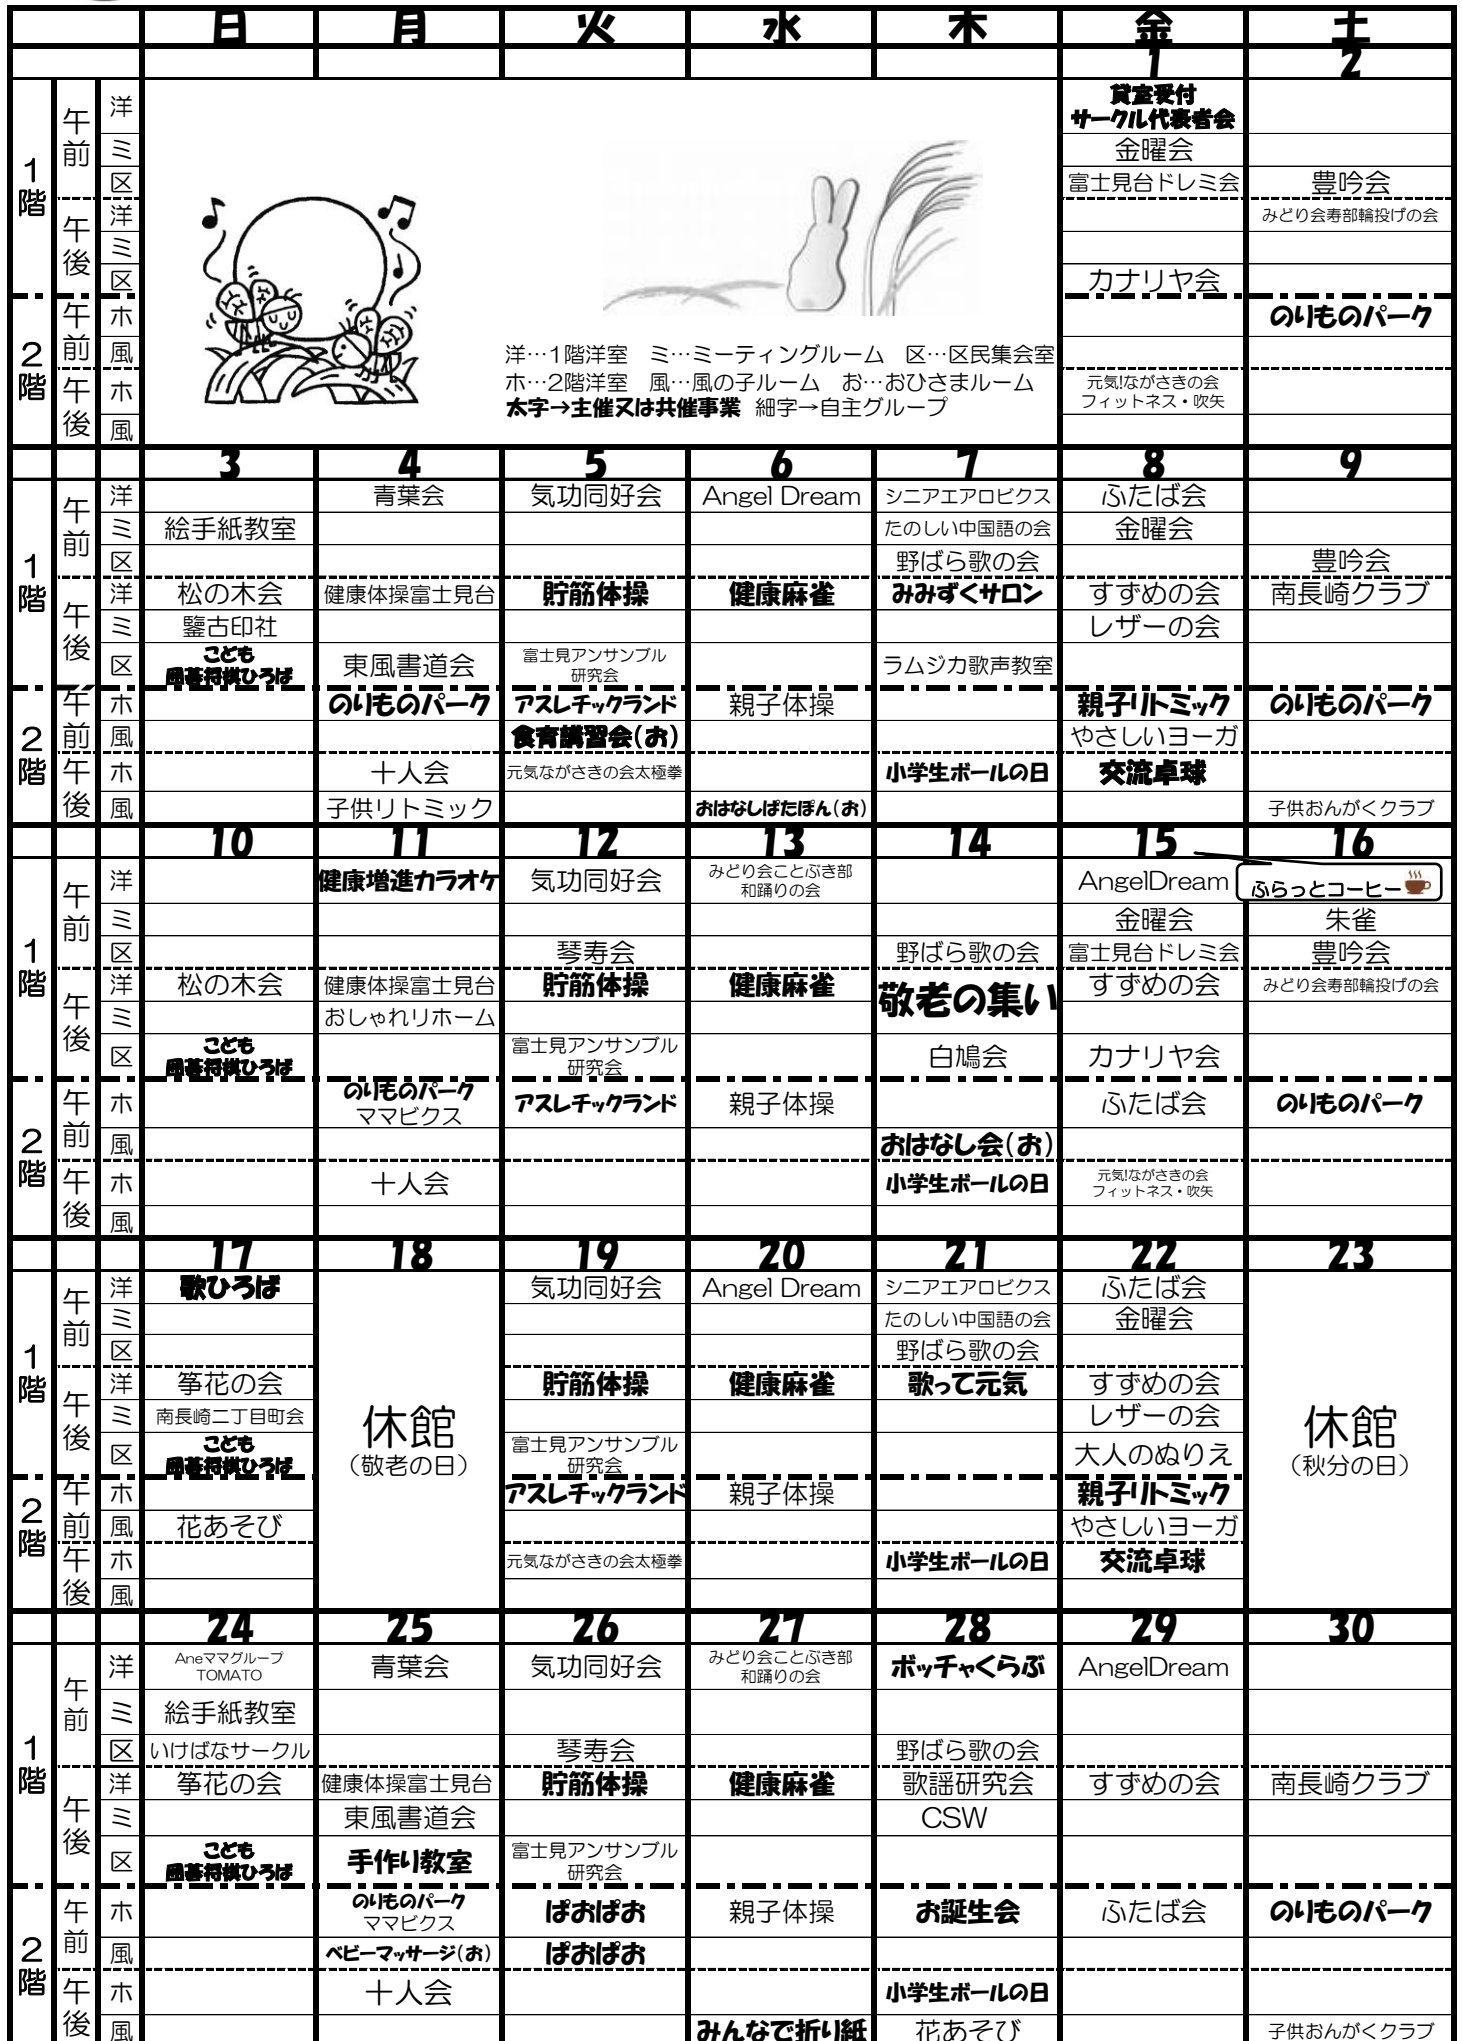 日 月 火 水 木 金 土
1 2
1階
午前 洋 貸室受付
サークル代表者会
ミ 金曜会
区 富士見台ドレミ会 豊吟会
午後 洋 みどり会寿部輪投げの会
ミ
区 カナリヤ会
2階
午前 ホ のりものパーク
風
午後 ホ 元気!ながさきの会
フィットネス・吹矢
風
洋…1階洋室 ミ…ミーティングルーム 区…区民集会室
ホ…2階洋室 風…風の子ルーム お…おひさまルーム
太字→主催又は共催事業 細字→自主グループ
3 4 5 6 7 8 9
1階
午前 洋 青葉会 気功同好会 Angel Dream シニアエアロビクス ふたば会
ミ 絵手紙教室 たのしい中国語の会 金曜会
区 野ばら歌の会 豊吟会
午後 洋 松の木会 健康体操富士見台 貯筋体操 健康麻雀 みみずくサロン すずめの会 南長崎クラブ
ミ 鑒古印社 レザーの会
区 こども
囲碁将棋ひろば 東風書道会 富士見アンサンブル
研究会 ラムジカ歌声教室
2階
午前 ホ のりものパーク アスレチックランド 親子体操 親子リトミック のりものパーク
風 食育講習会(お) やさしいヨーガ
午後 ホ 十人会 元気ながさきの会太極拳 小学生ボールの日 交流卓球
風 子供リトミック おはなしぱたぽん(お) 子供おんがくクラブ
10 11 12 13 14 15 16
1階
午前 洋 健康増進カラオケ 気功同好会 みどり会ことぶき部
和踊りの会 AngelDream ふらっとコーヒー
ミ 金曜会 朱雀
区 琴寿会 野ばら歌の会 富士見台ドレミ会 豊吟会
午後 洋 松の木会 健康体操富士見台 貯筋体操 健康麻雀 敬老の集い すずめの会 みどり会寿部輪投げの会
ミ おしゃれリホーム
区 こども
囲碁将棋ひろば 富士見アンサンブル
研究会 白鳩会 カナリヤ会
2階
午前 ホ のりものパーク
ママビクス アスレチックランド 親子体操 ふたば会 のりものパーク
風 おはなし会(お)
午後 ホ 十人会 小学生ボールの日 元気!ながさきの会
フィットネス・吹矢
風
17 18 19 20 21 22 23
1階
午前 洋 歌ひろば 気功同好会 Angel Dream シニアエアロビクス ふたば会
ミ たのしい中国語の会 金曜会
区 野ばら歌の会
午後 洋 筝花の会 貯筋体操 健康麻雀 歌って元気 すずめの会
ミ 南長崎二丁目町会 休館
(敬老の日) レザーの会 休館
(秋分の日)
区 こども
囲碁将棋ひろば 富士見アンサンブル
研究会 大人のぬりえ
2階
午前 ホ アスレチックランド 親子体操 親子リトミック
風 花あそび やさしいヨーガ
午後 ホ 元気ながさきの会太極拳 小学生ボールの日 交流卓球
風
24 25 26 27 28 29 30
1階
午前 洋 Aneママグループ
TOMATO 青葉会 気功同好会 みどり会ことぶき部
和踊りの会 ボッチャくらぶ AngelDream
ミ 絵手紙教室
区 いけばなサークル 琴寿会 野ばら歌の会
午後 洋 筝花の会 健康体操富士見台 貯筋体操 健康麻雀 歌謡研究会 すずめの会 南長崎クラブ
ミ 東風書道会 CSW
区 こども
囲碁将棋ひろば 手作り教室 富士見アンサンブル
研究会
2階
午前 ホ のりものパーク
ママビクス ぱおぱお 親子体操 お誕生会 ふたば会 のりものパーク
風 ベビーマッサージ(お) ぱおぱお
午後 ホ 十人会 小学生ボールの日
風 みんなで折り紙 花あそび 子供おんがくクラブ